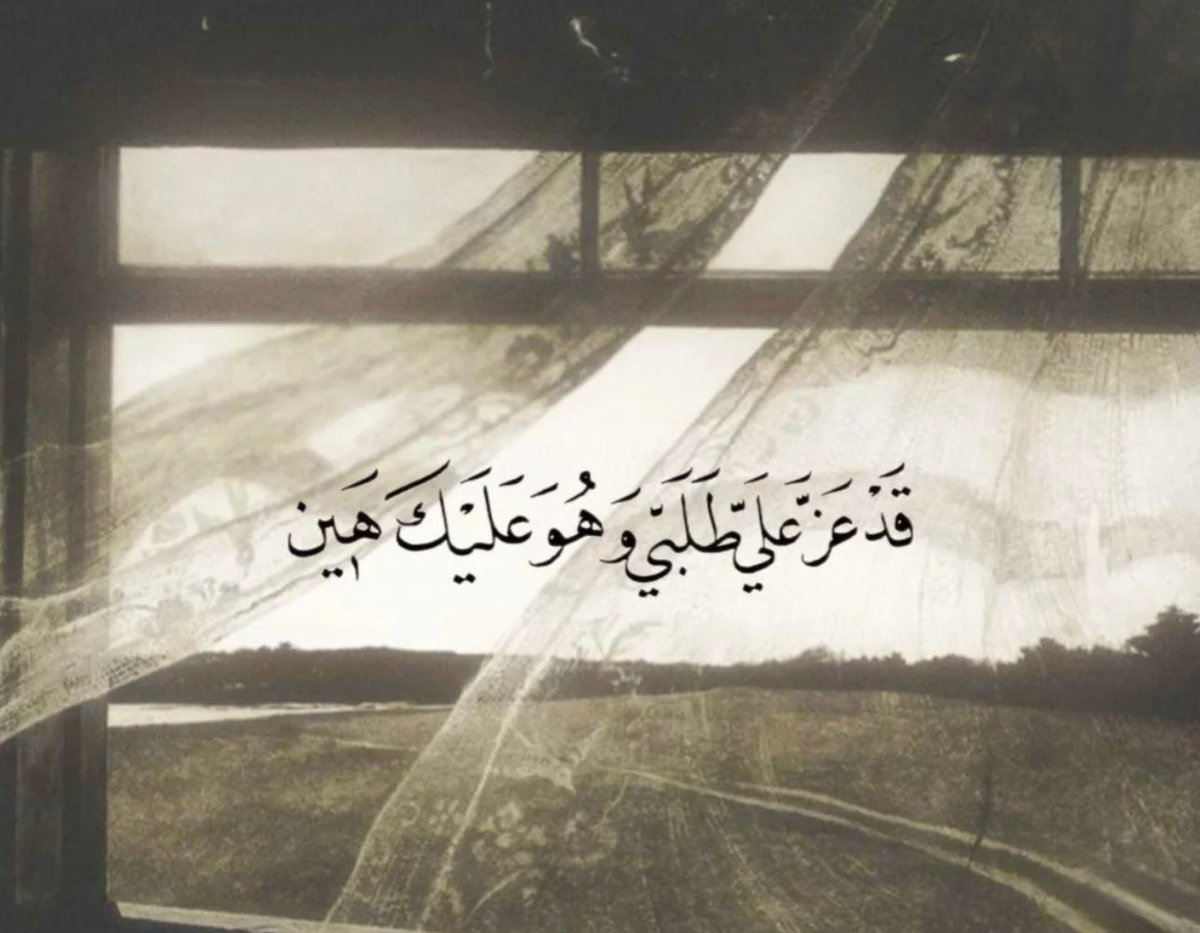 قَدْ عَزَّ عَلَيَّ طَلَبَي وَ هُوَ عَلَيْكَ هَيِن